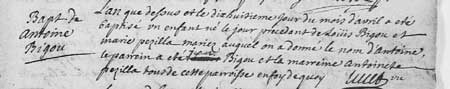 Bapt de
Antoine
Bigou
L'an que dessus et le dixhuitieme jour du mois d'avril a eté
Baptisé un enfant né le jour precedant de Loüis Bigou et
marie pezilla mariez auquel on a donne le nom d'antoine,
le parrein a eté Bigou et la marreine Antoinete
pezilla tous de cette parroisse en foy de quoy